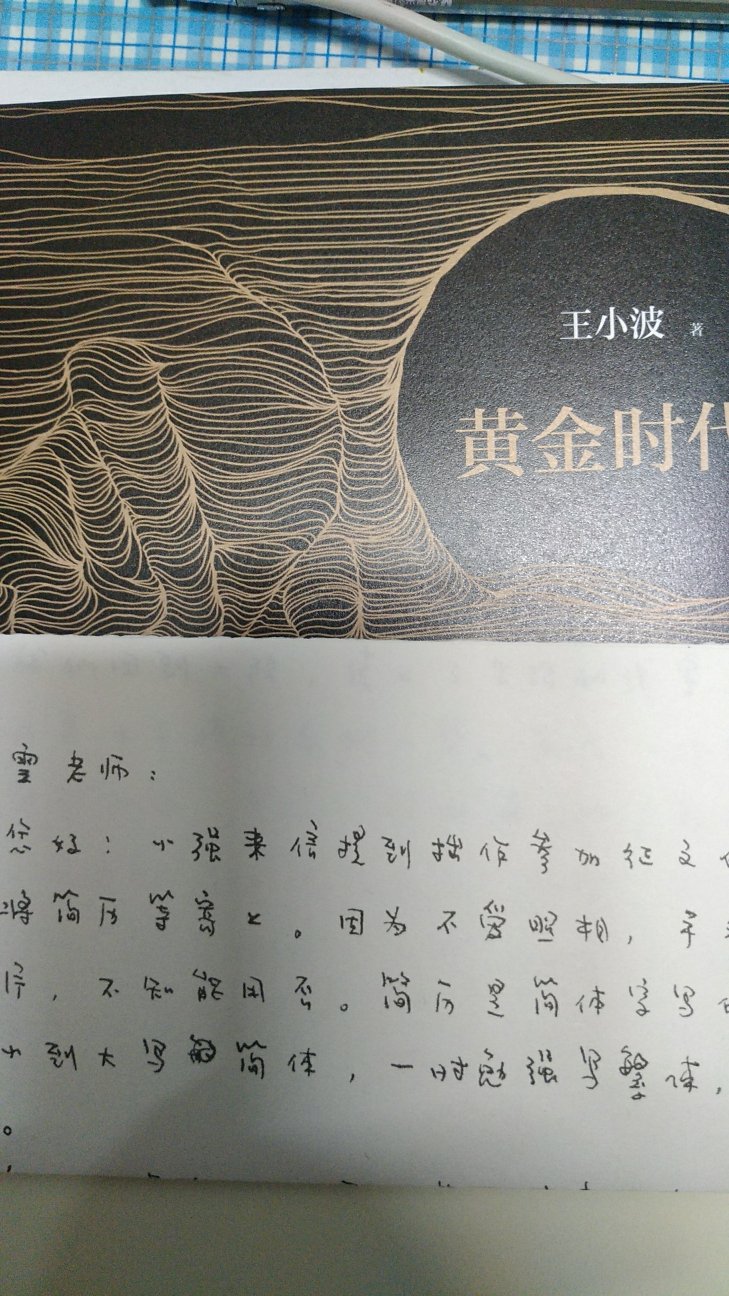 王小波 著
黄金时代
雪老师：
您好！小强来信提到拙作参加征文
将简历等寄上。因为不爱照相，手
片，不知能用否。简历是简体字写
小到大写简体，一时勉强写繁体，
。